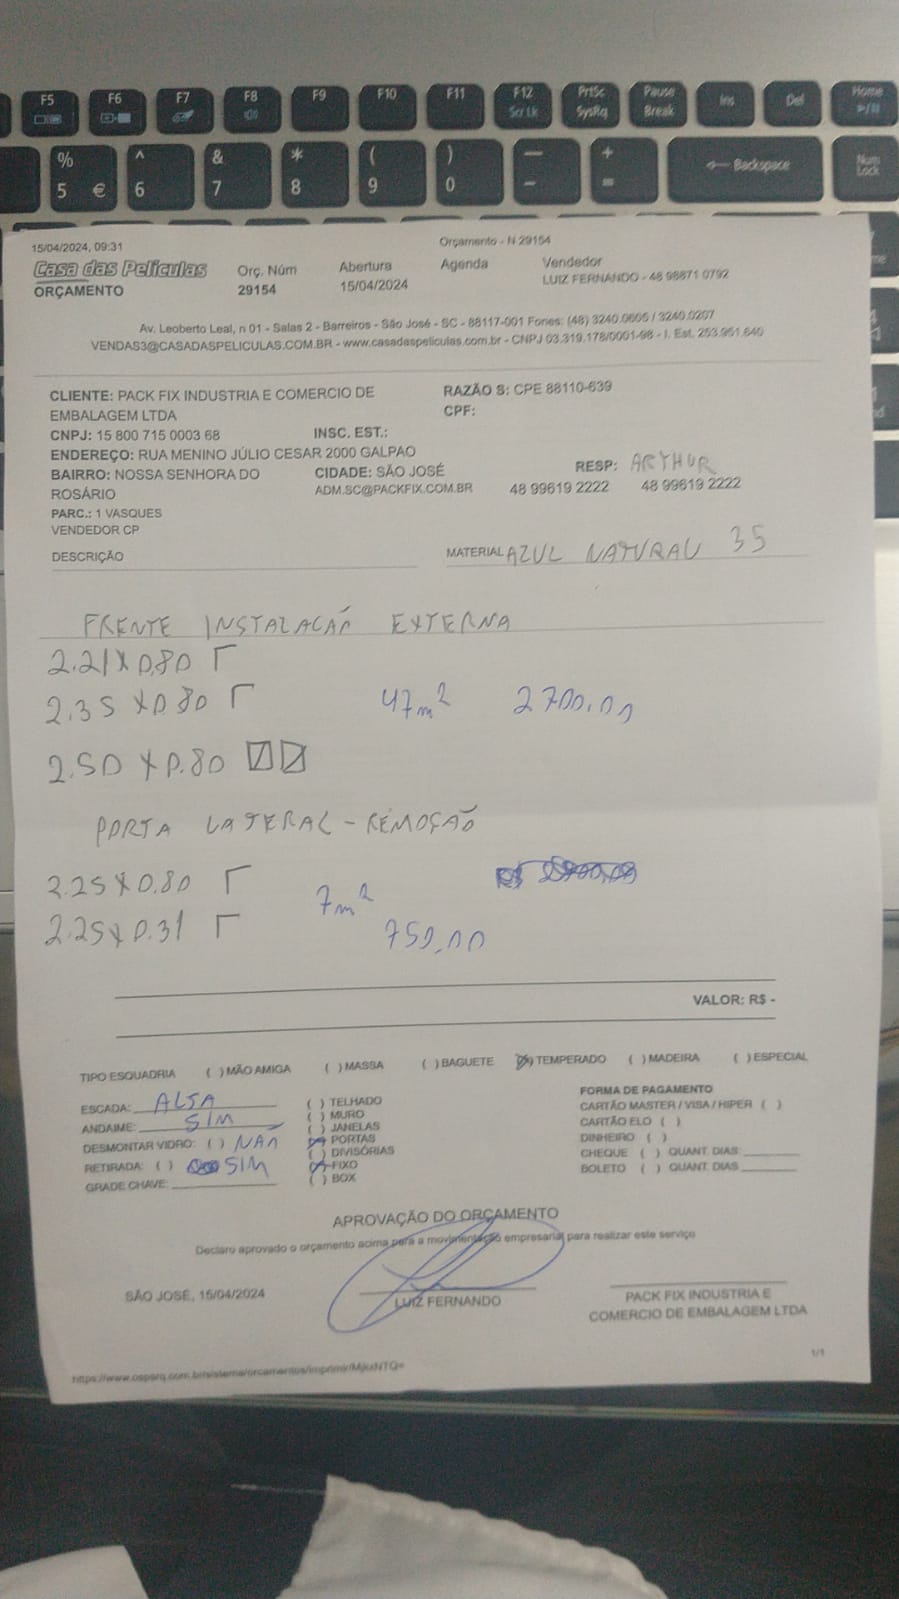 F5 F6 F7 F8 F9 F10 F11 F12 PrtSc Pause Ins Del Home
Scr Lk SysRq Break
% ^ & * ( ) — + Backspace Num
5 € 6 7 8 9 0 - = Lock
15/04/2024, 09:31 Orçamento - N 29154
Casa das Películas Orç. Núm Abertura Agenda Vendedor
ORÇAMENTO 29154 15/04/2024 LUIZ FERNANDO - 48 98871 0792
Av. Leoberto Leal, n 01 - Salas 2 - Barreiros - São José - SC - 88117-001 Fones: (48) 3240.0605 / 3240.0207
VENDAS3@CASADASPELICULAS.COM.BR - www.casadaspeliculas.com.br - CNPJ 03.319.178/0001-98 - I. Est. 253.951.640
CLIENTE: PACK FIX INDUSTRIA E COMERCIO DE RAZÃO S: CPE 88110-639
EMBALAGEM LTDA CPF:
CNPJ: 15 800 715 0003 68 INSC. EST.:
ENDEREÇO: RUA MENINO JÚLIO CESAR 2000 GALPAO
BAIRRO: NOSSA SENHORA DO CIDADE: SÃO JOSÉ RESP: ARTHUR
ROSÁRIO ADM.SC@PACKFIX.COM.BR 48 99619 2222 48 99619 2222
PARC.: 1 VASQUES
VENDEDOR CP
DESCRIÇÃO MATERIAL AZUL NATURAL 35
FRENTE INSTALACÃO EXTERNA
2.21 X 0.80
2.35 X 0.80 47m² 2700,00
2.50 X 0.80
PORTA LATERAL - REMOÇÃO
2.25 X 0.80
7m²
2.25 X 0.31 750,00
VALOR: R$ -
TIPO ESQUADRIA ( ) MÃO AMIGA ( ) MASSA ( ) BAGUETE (X) TEMPERADO ( ) MADEIRA ( ) ESPECIAL
ESCADA: ALTA ( ) TELHADO FORMA DE PAGAMENTO
ANDAIME: SIM ( ) MURO CARTÃO MASTER / VISA / HIPER ( )
( ) JANELAS CARTÃO ELO ( )
DESMONTAR VIDRO: ( ) NÃO (X) PORTAS DINHEIRO ( )
RETIRADA: ( ) SIM ( ) DIVISÓRIAS CHEQUE ( ) QUANT. DIAS
(X) FIXO BOLETO ( ) QUANT. DIAS
GRADE CHAVE: ( ) BOX
APROVAÇÃO DO ORÇAMENTO
Declaro aprovado o orçamento acima para a movimentação empresarial para realizar este serviço
SÃO JOSÉ, 15/04/2024 LUIZ FERNANDO PACK FIX INDUSTRIA E
COMERCIO DE EMBALAGEM LTDA
1/1